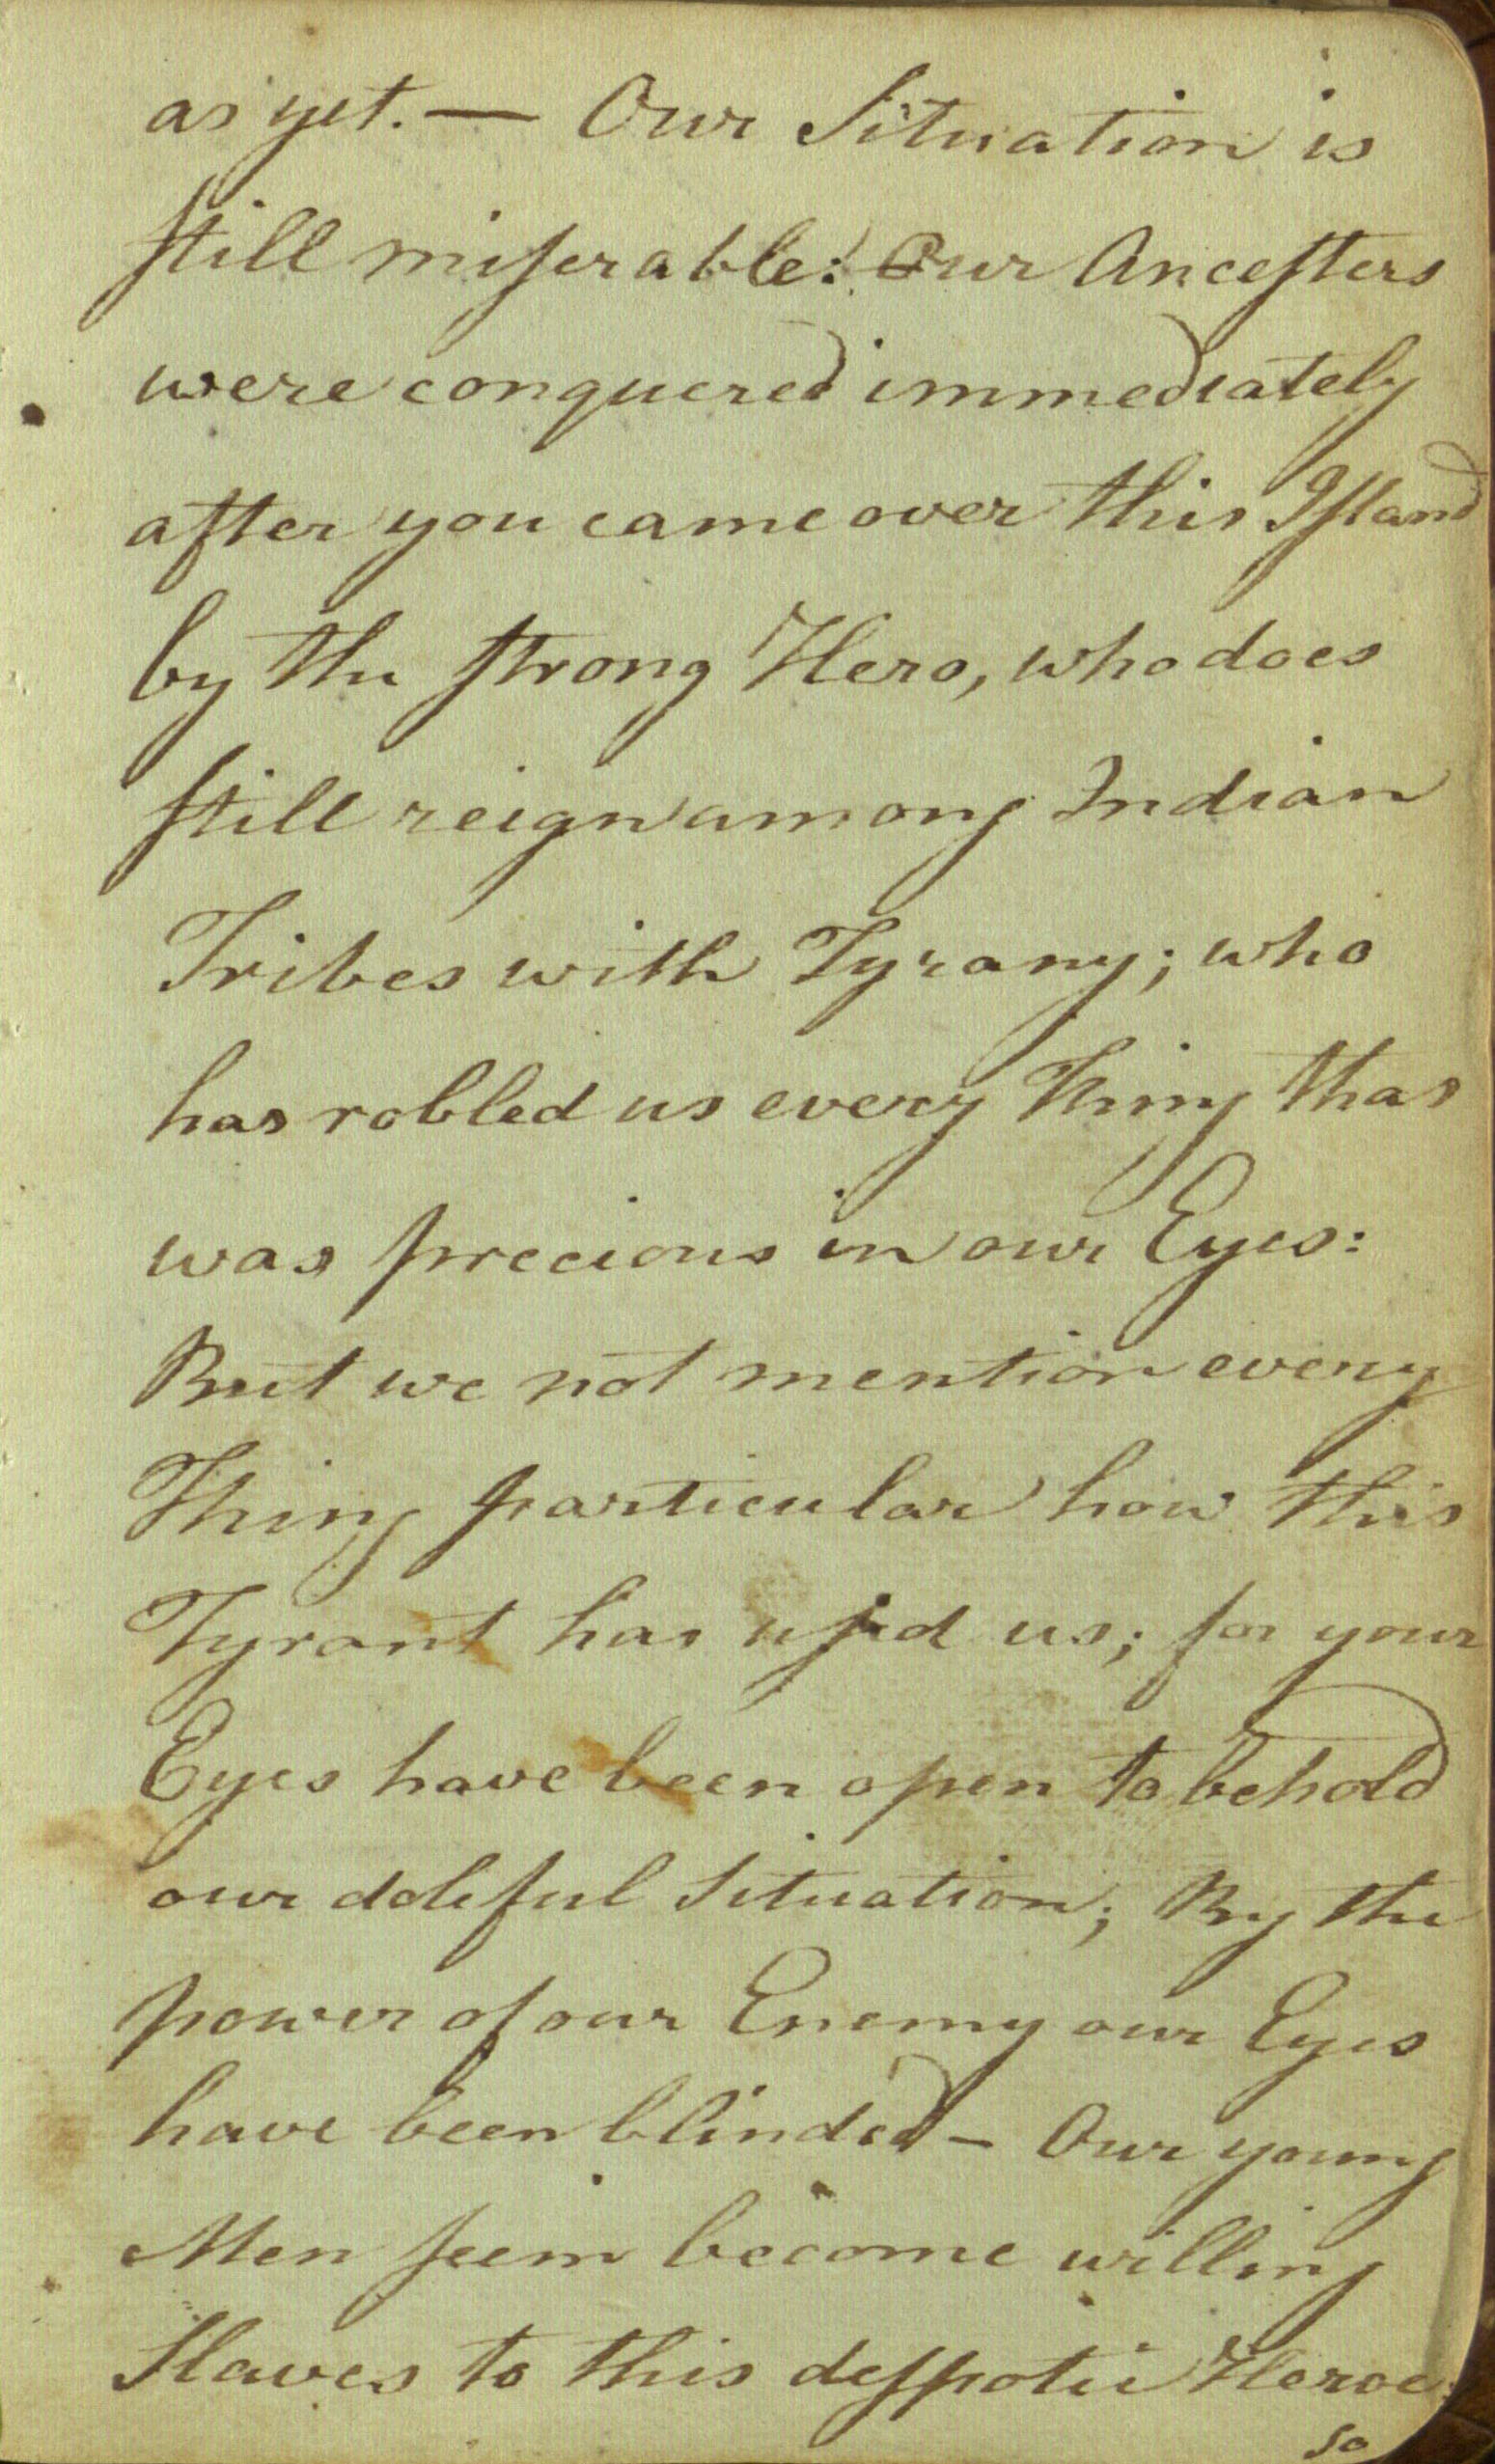 as yet. — Our Situation is
still miserable: Our Ancesters
were conquered immediately
after you came over this Island
by the strong Hero, who does
still reign among Indian
Tribes with Tyrany; who
has robbed us every Thing that
was precious in our Eyes:
But we not mention every
Thing particular how this
Tyrant has used us; for your
Eyes have been open to behold
our doleful Situation; By the
power of our Enemy our Eyes
have been blinded – Our young
Men seem become willing
Slaves to this desspotic Heroe:
so